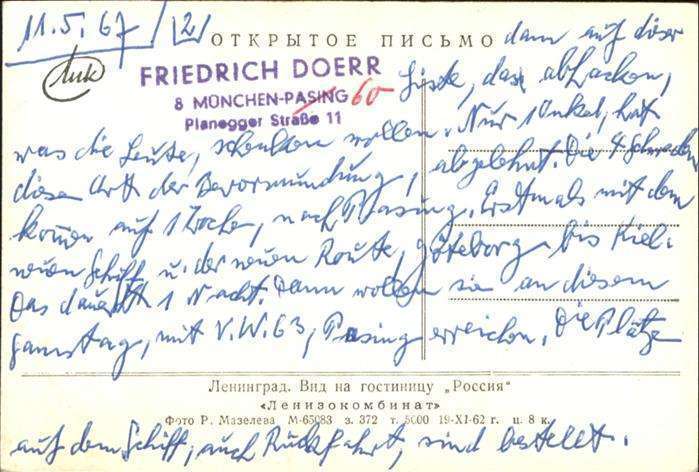 11.5.67 /2/
ОТКРЫТОЕ ПИСЬМО
dann auf dieser
FRIEDRICH DOERR
8 MÜNCHEN-PASING 60
Planegger Straße 11
Liste, das abhacken,
was die Leute, schenken wollen. Nur 1 Onkel, hat
diese Art der Bevormundung, abgelehnt. Die 4 Schweden
kommen auf 1 Woche, nach Pasing. Erstmals mit dem
neuen Schiff u. der neuen Route, Göteborg bis Kiel.
Das dauert 1 Nacht. Dann wollen sie an diesem
Samstag, mit V.W.63, Pasing erreichen. Die Plätze
Ленинград. Вид на гостиницу „Россия“
«Ленизокомбинат»
Фото Р. Мазелева М-65083 з. 372 т. 5000 19-XI-62 г. ц. 8 к.
auf dem Schiff, auch Rückfahrt, sind bestellt.